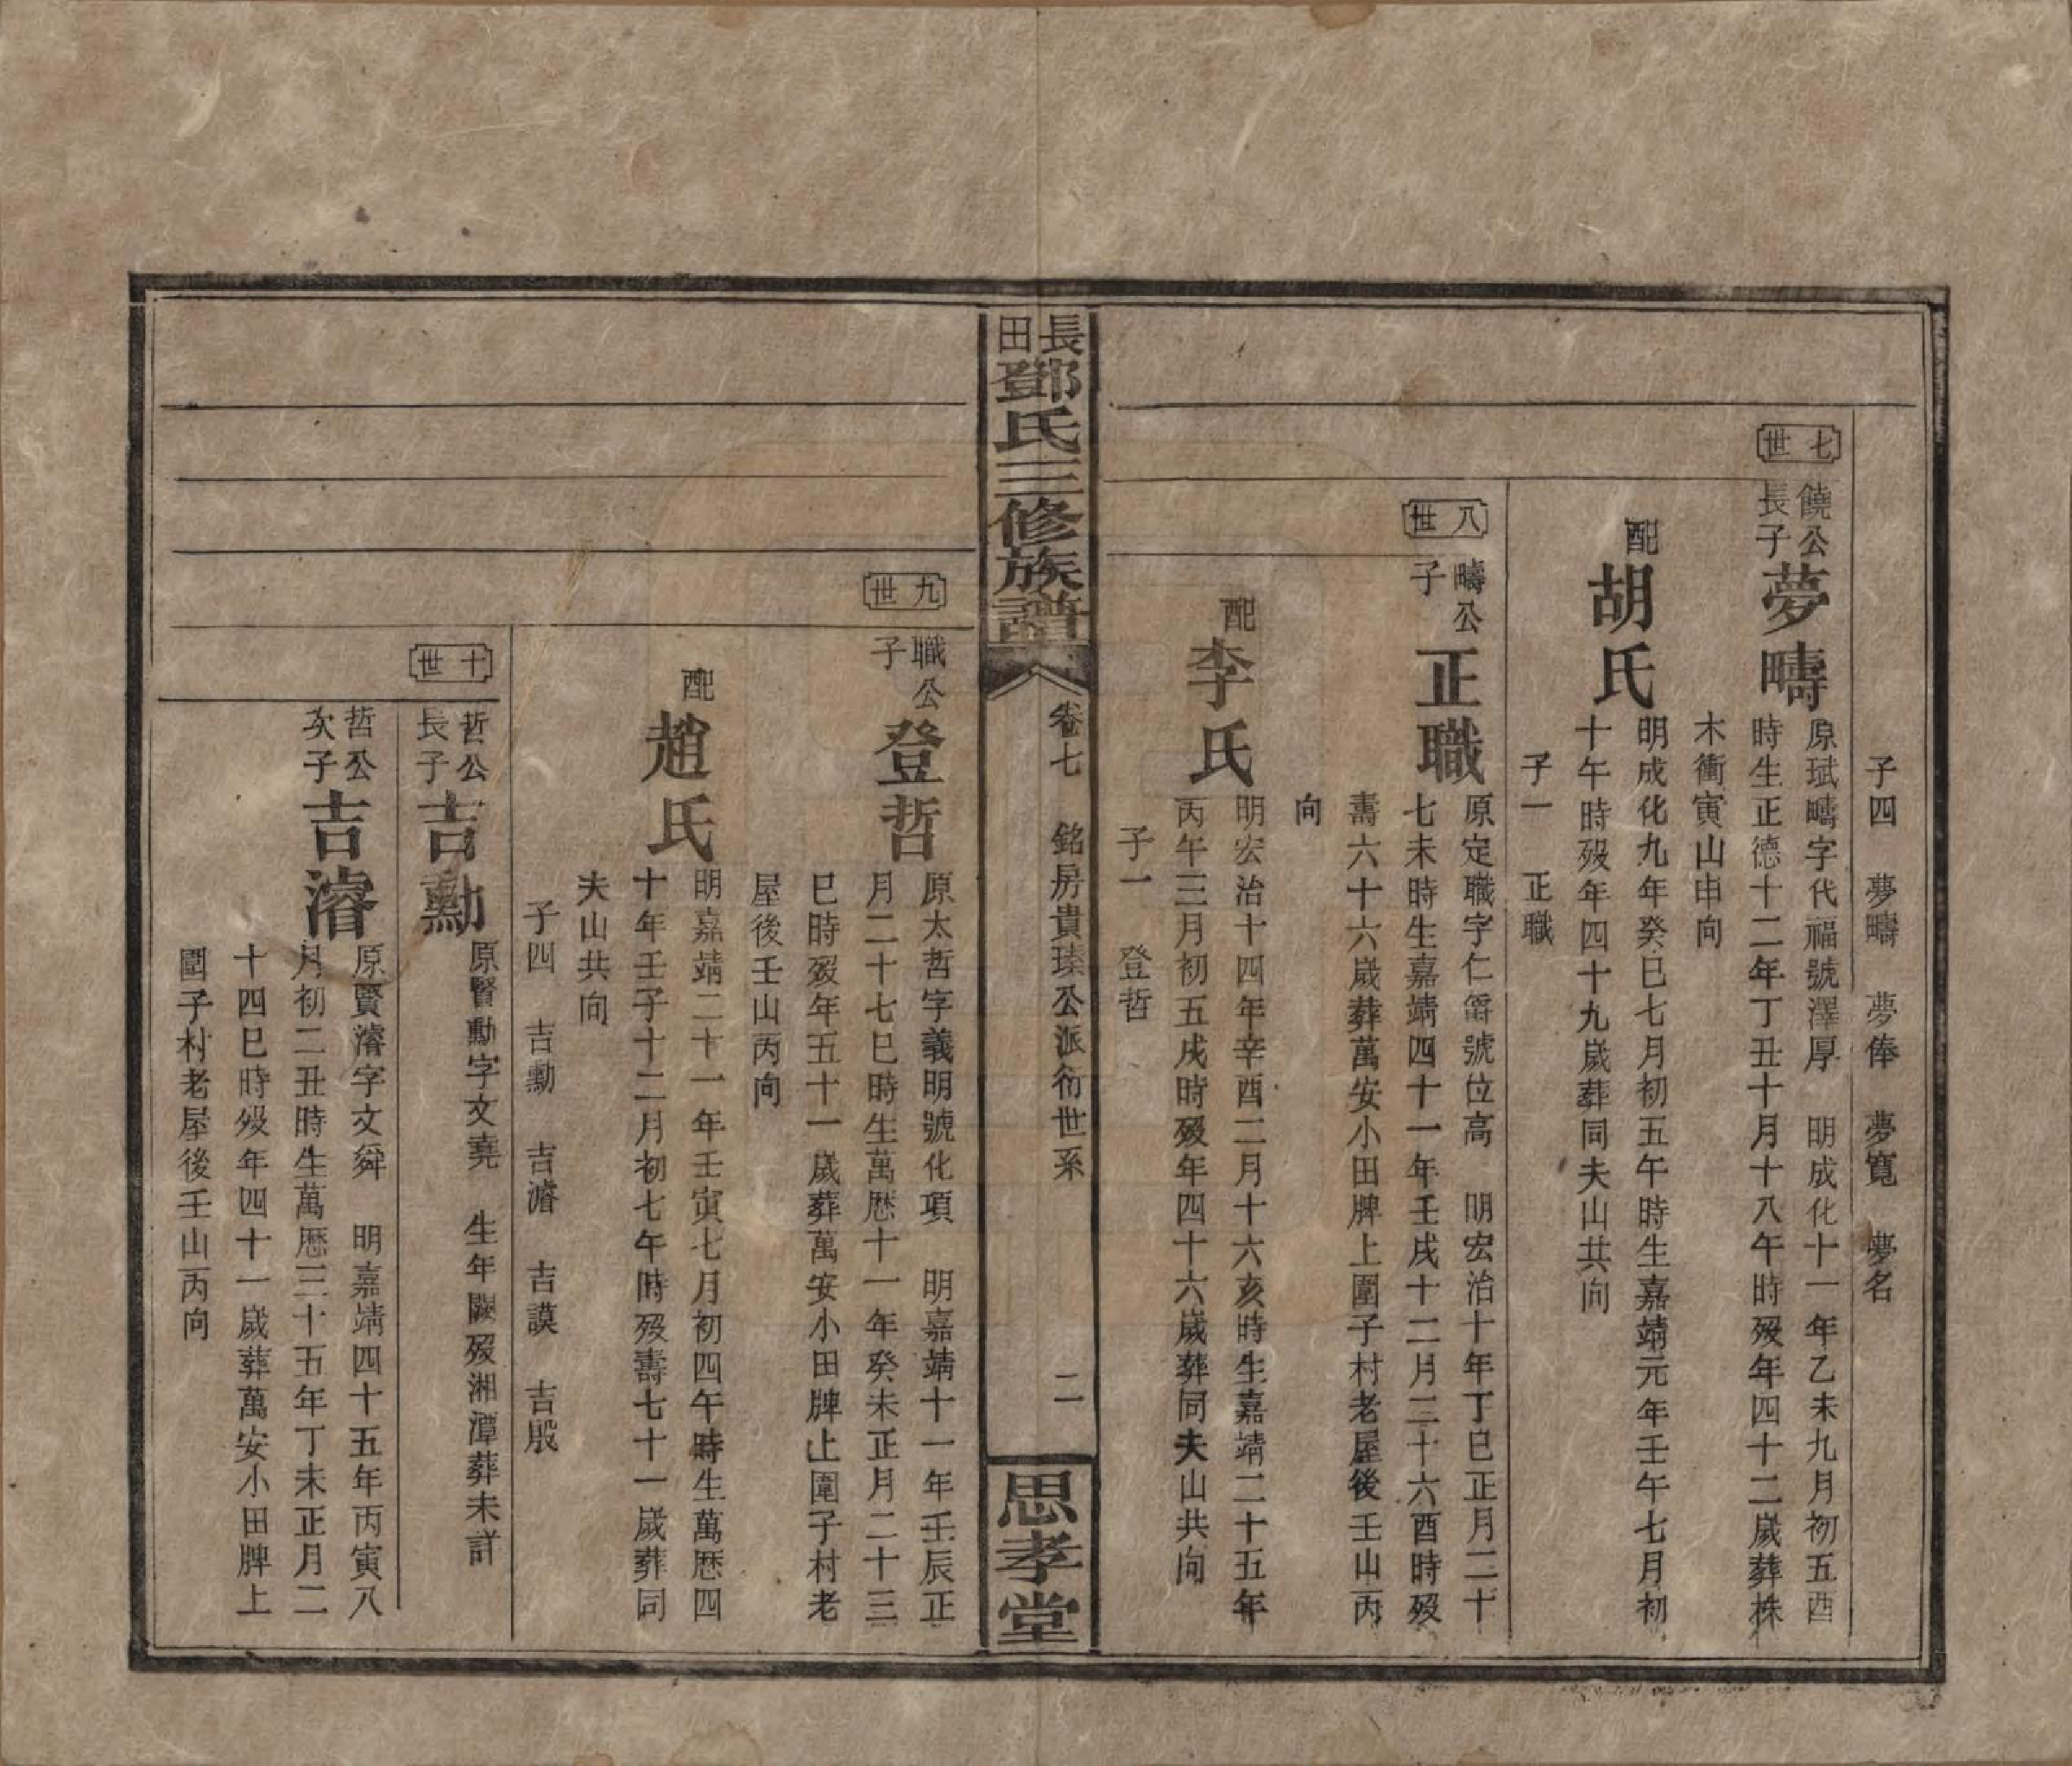 子四　夢疇　夢俸　夢寬　夢名
七世
饒公長子
夢疇
原珷疇字代福號澤厚　明成化十一年乙未九月初五酉
時生正德十二年丁丑十月十八午時歿年四十二歲葬株
木衝寅山申向
配
胡氏
明成化九年癸巳七月初五午時生嘉靖元年壬午七月初
十午時歿年四十九歲葬同夫山共向
子一　正職
八世
疇公子
正職
原定職字仁爵號位高　明宏治十年丁巳正月二十
七未時生嘉靖四十一年壬戌十二月三十六酉時歿
壽六十六歲葬萬安小田牌上圍子村老屋後壬山丙
向
配
李氏
明宏治十四年辛酉二月十六亥時生嘉靖二十五年
丙午三月初五戌時歿年四十六歲葬同夫山共向
子一　登哲
長田鄧氏三修族譜
卷七　銘房貴瑧公派衍世系
二
思孝堂
九世
職公子
登哲
原太哲字義明號化項　明嘉靖十一年壬辰正
月二十七巳時生萬歷十一年癸未正月二十三
巳時歿年五十一歲葬萬安小田牌上圍子村老
屋後壬山丙向
配
趙氏
明嘉靖二十一年壬寅七月初四午時生萬歷四
十年壬子十二月初七午時歿壽七十一歲葬同
夫山共向
子四　吉勳　吉濬　吉謨　吉殷
十世
哲公長子
吉勳
原賢勳字文堯　生年闕歿湘潭葬未詳
哲公次子
吉濬
原賢濬字文舜　明嘉靖四十五年丙寅八
月初二丑時生萬歷三十五年丁未正月二
十四巳時歿年四十一歲葬萬安小田牌上
圍子村老屋後壬山丙向